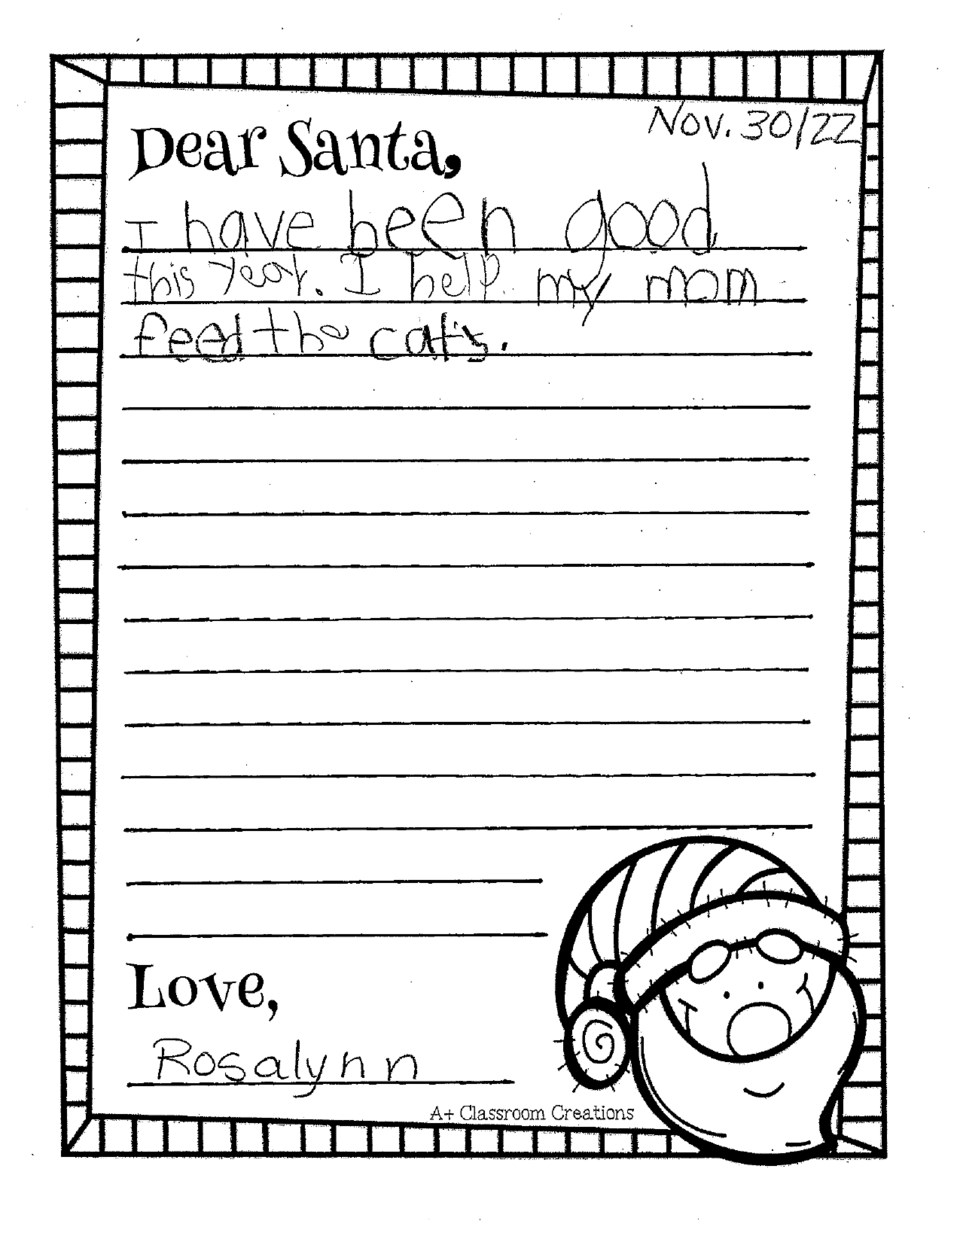 Nov. 30/22
Dear Santa,
I have been good
this year. I help my mom
feed the cat's.
Love,
Rosalynn
A+ Classroom Creations